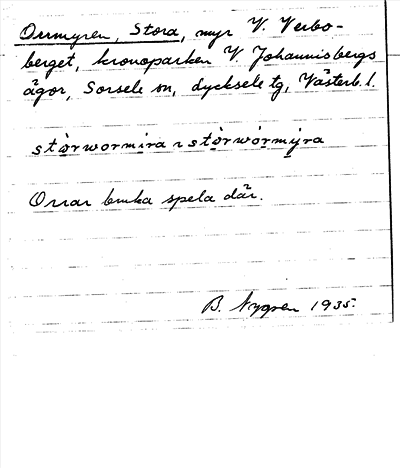 Orrmyren, Stora, myr V. Verbo-
berget, kronoparken V. Johannisbergs
ägor, Sorsele sn, Lycksele tg, Västerb. l.
stòrwormira ~ stòrwòrmýra
Orrar bruka spela där.
B. Nygren 1935.